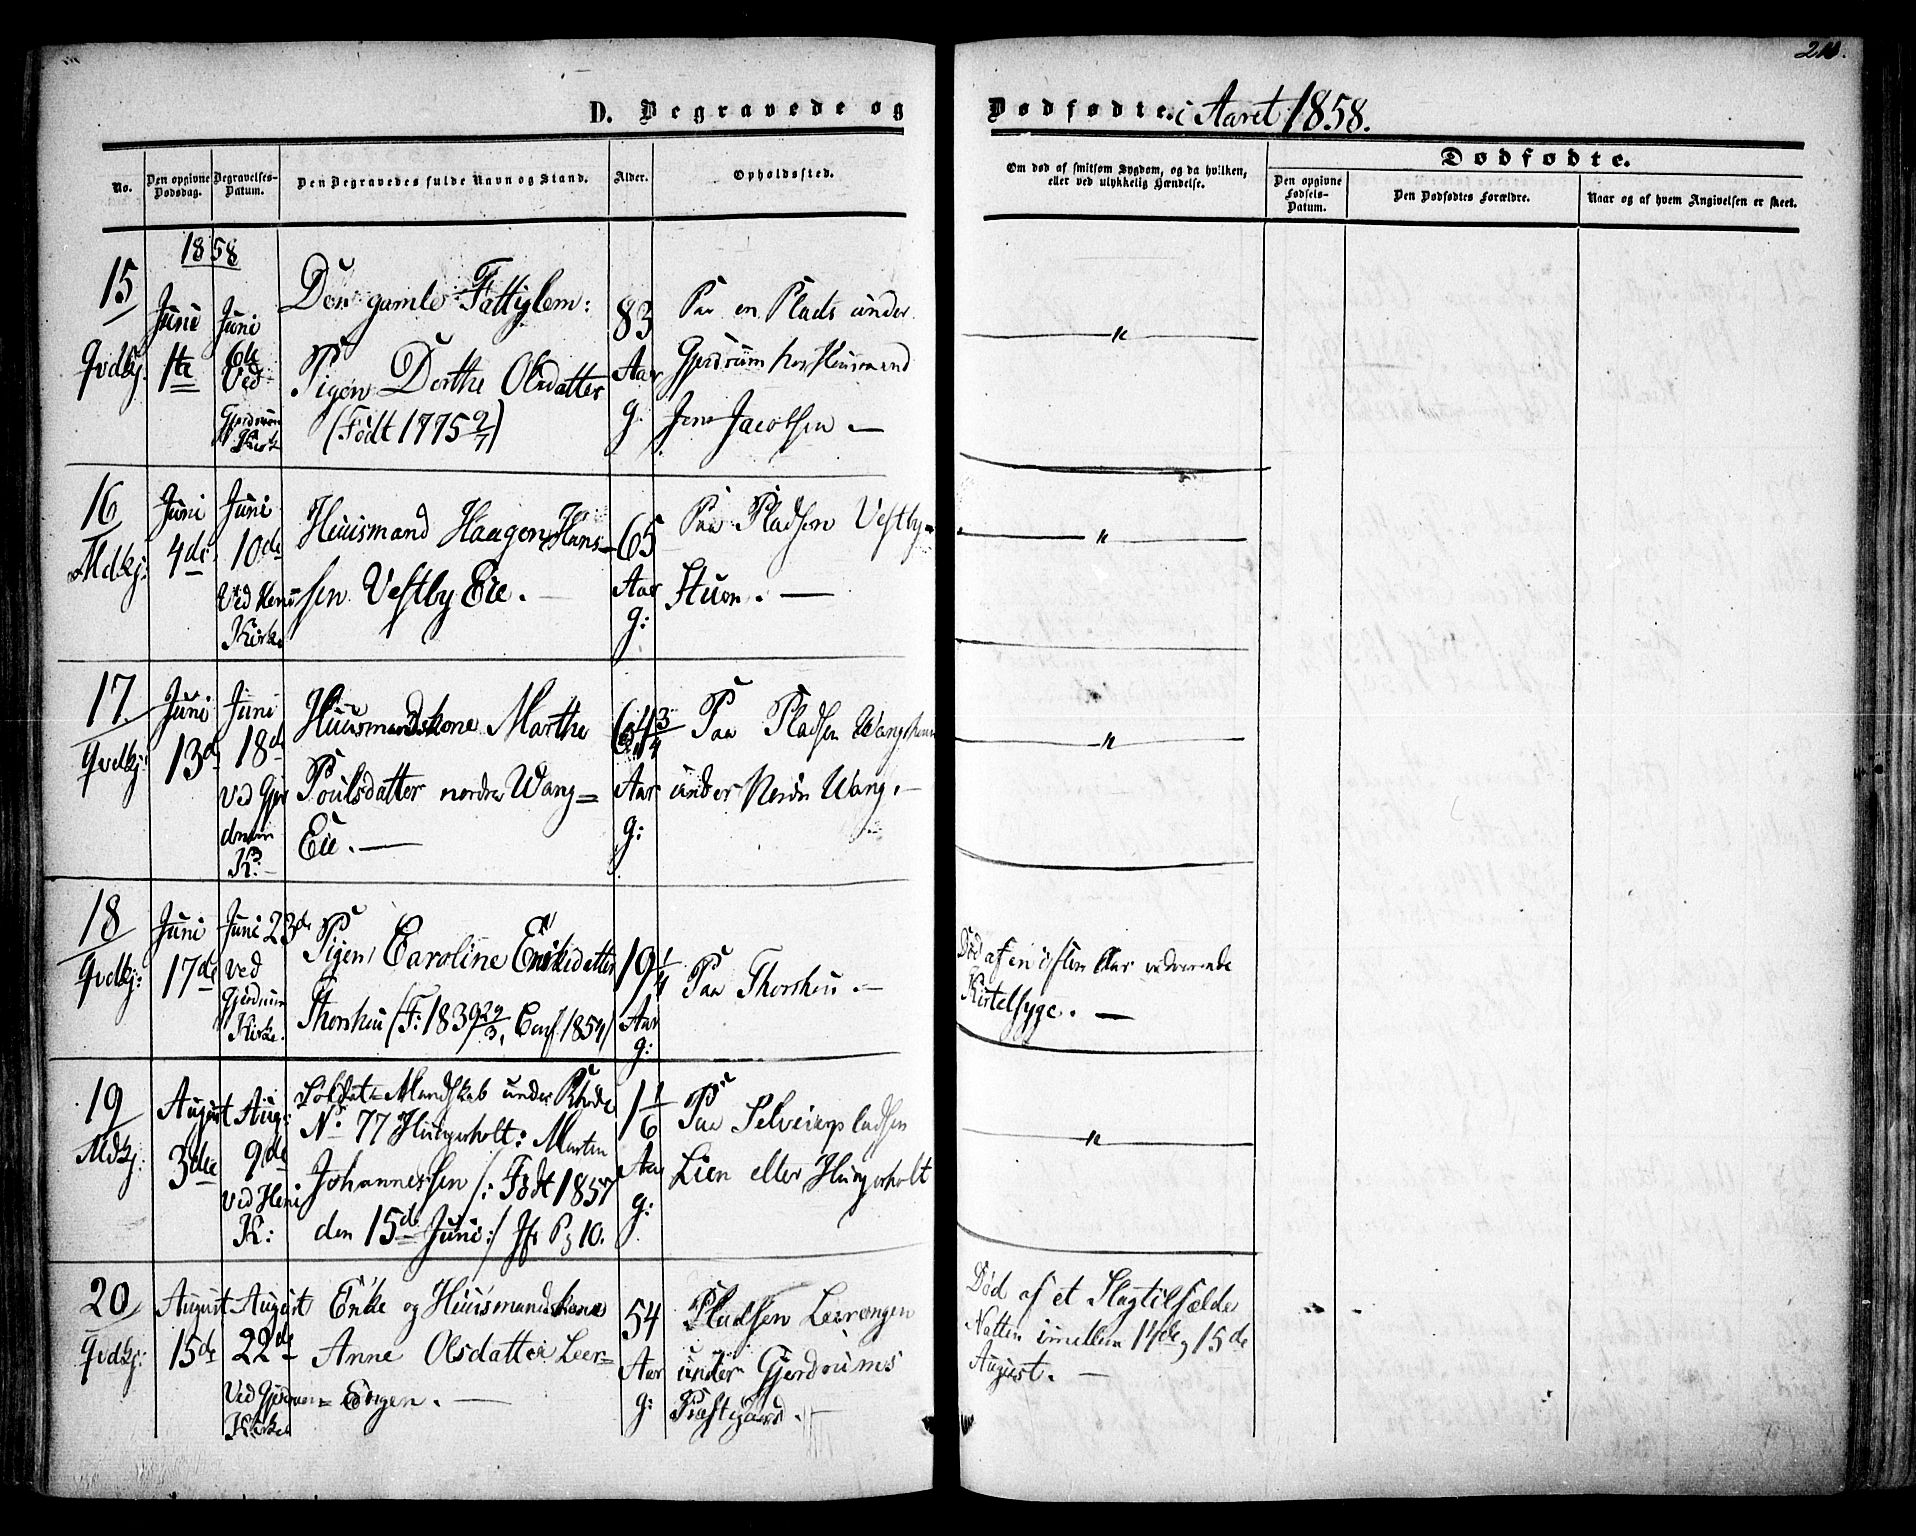 D. Begravede og Dødfødte. i Aaret 1858.
No.
Den opgivne Dødsdag.
Begravelses-Datum.
Den Begravedes fulde Navn og Stand.
Alder.
Opholdssted.
Om død af smitsom Sygdom, og da hvilken,
eller ved ulykkelig Hændelse.
Dødfødte.
Den opgivne Fødsels-Datum.
Den Dødfødtes Forældre.
Naar og af hvem Angivelsen er skeet.
1858
15
Qvdkj.
Juni
1te
Juni
6te
Ved
Gjerdrum
Kirke
Den gamle Fattiglem:
Pigen Dorthe Olsdatter
(Født 1775 9/7)
83
Aar
g.
Paa en Plads under
Gjerdrum hos Huusmand
Jens Jacobsen. —
"
16
Mdkj:
Juni
4de
Juni
10de
Ved Heni
Kirke
Huusmand Haagen Hans-
sen Vestby Eie. —
65
Aar
g:
Paa Pladsen Vestby-
Stuen. —
"
17
Qvdkj:
Juni
13de
Juni
18de
Ved Gjer
drum
K:
Huusmandskone Marthe
Poulsdatter nordre Wang=
Eie. —
64 3/4
Aar
g:
Paa Pladsen
under Nordre Wang. —
"
18
Qvdkj:
Juni
17de
Juni 23de
ved
Gjerdrum
Kirke.
Pigen Caroline Eriksdatter
Thorshus (F: 1839 29/3, Conf. 1854)
19 1/4
Aar
g:
Paa Thorshus. —
Død af en Aar vedvarende
Kirtelsyge. —
19
Mdkj:
August
3die
Aug:
9de
Ved Heni
K:
Soldat=Mandskab under Rhode
No 77 Hungerholt: Martin
Johannessen /: Født 1857
den 15de Juni :/ Jfr Pg 10.
1 1/6
Aar
g:
Paa Selveierpladsen
Lien eller Hungerholt
"
20
Qvdkj:
August
15de
August
22de
Ved Gjerdrum=
Kirke
Enke og Huusmandskone
Anne Olsdatter Leer=
Engen. —
54
Aar
g:
Pladsen Leerengen
under Gjerdrums
Præstgaard.
Død af et Slagtilfælde
Natten imellem 14de og 15de
August. —